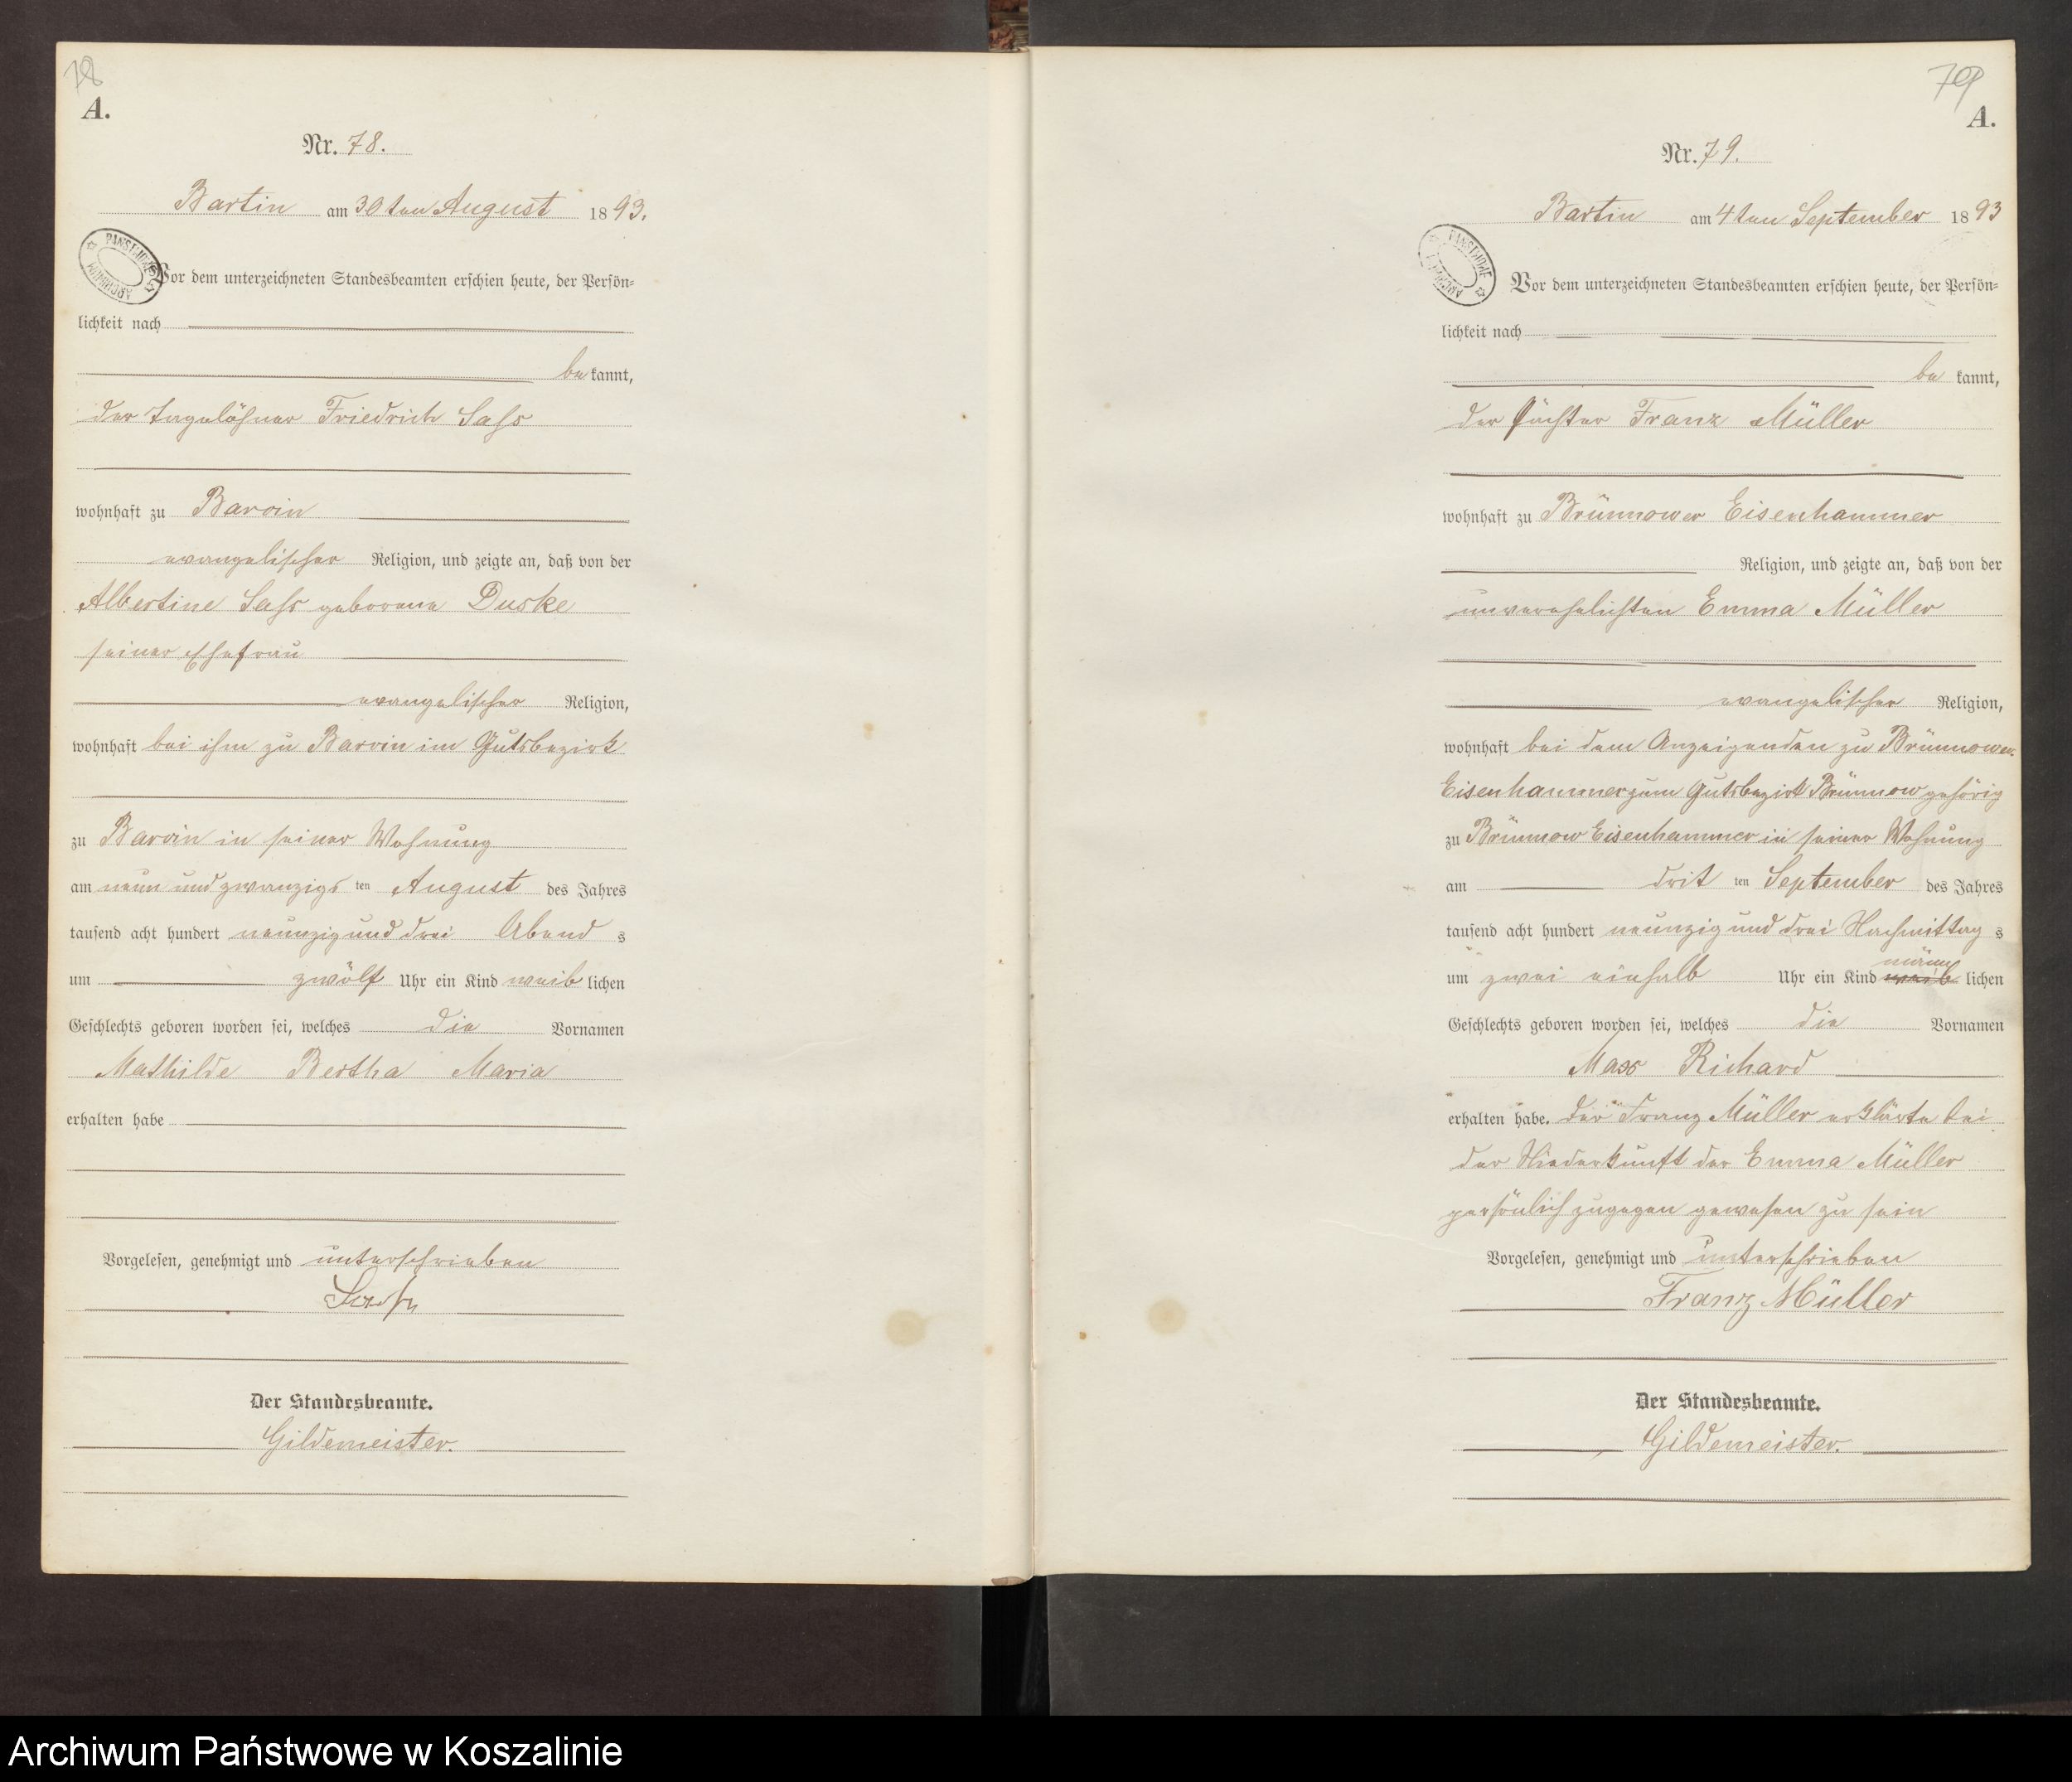 78
A.
Nr. 78.
Bartin am 30ten August 1893.
Vor dem unterzeichneten Standesbeamten erschien heute, der Persön=
lichkeit nach
bekannt,
der Tagelöhner Friedrich Sass
wohnhaft zu Barvin
evangelischer Religion, und zeigte an, daß von der
Albertine Sass geborene Duske
seiner Ehefrau
evangelischer Religion,
wohnhaft bei ihm zu Barvin im Gutsbezirk
zu Barvin in seiner Wohnung
am neun und zwanzigsten August des Jahres
tausend acht hundert neunzig und drei Abends
um zwölf Uhr ein Kind weiblichen
Geschlechts geboren worden sei, welches die Vornamen
Mathilde Bertha Maria
erhalten habe
Vorgelesen, genehmigt und unterschrieben
Der Standesbeamte.
Gildemeister.
79
A.
Nr. 79.
Bartin am 4ten September 1893
Vor dem unterzeichneten Standesbeamten erschien heute, der Persön=
lichkeit nach
bekannt,
der Pächter Franz Müller
wohnhaft zu Brünnower Eisenhammer
Religion, und zeigte an, daß von der
unverehelichten Emma Müller
evangelischer Religion,
wohnhaft bei dem Anzeigenden zu Brünnower
Eisenhammer zum Gutsbezirk Brünnow gehörig
zu Brünnow Eisenhammer in seiner Wohnung
am dritten September des Jahres
tausend acht hundert neunzig und drei Nachmittags
um zwei einhalb Uhr ein Kind weib männlichen
Geschlechts geboren worden sei, welches die Vornamen
Max Richard
erhalten habe. Der Franz Müller erklärte bei
der Niederkunft der Emma Müller
persönlich zugegen gewesen zu sein
Vorgelesen, genehmigt und unterschrieben
Franz Müller
Der Standesbeamte.
Gildemeister.
Archiwum Państwowe w Koszalinie